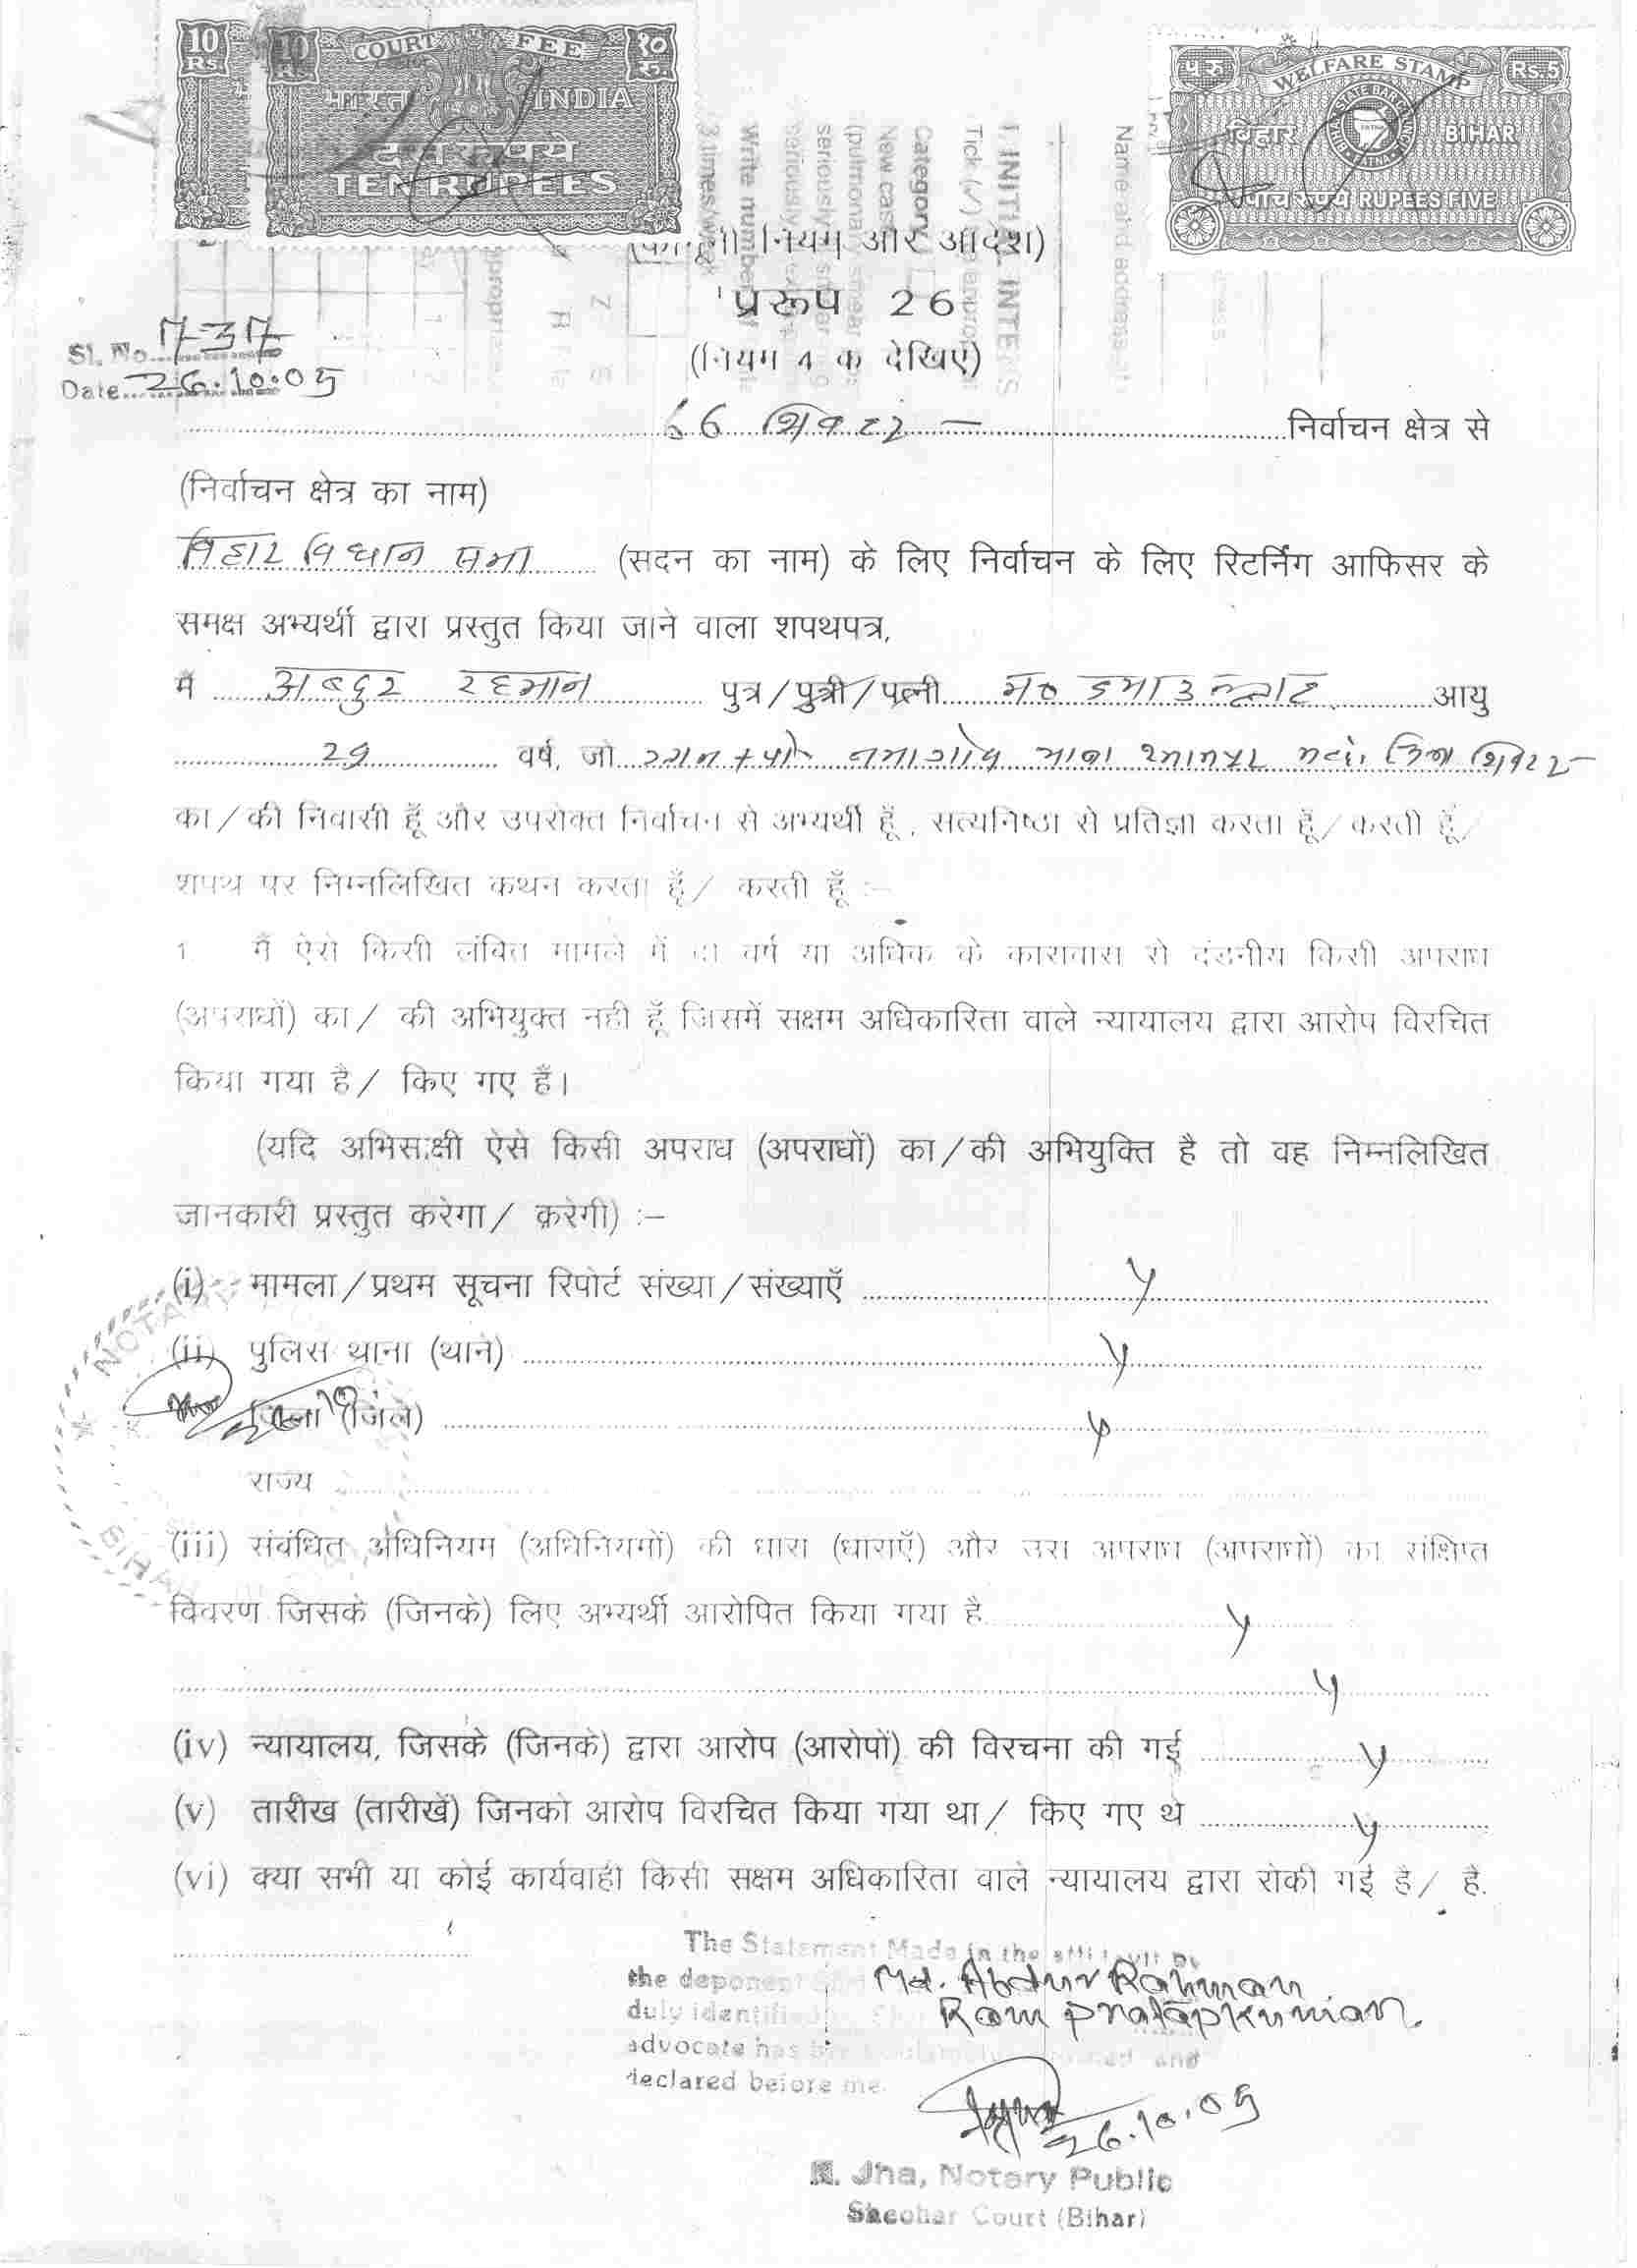 10 Rs. 10 Rs. COURT FEE १० रु.
भारत INDIA
दस रुपये
TEN RUPEES
प रु WELFARE STAMP Rs.5
BIHAR STATE BAR COUNCIL PATNA
बिहार BIHAR
पांच रुपये RUPEES FIVE
नियम और आदेश)
प्ररूप 26
(नियम 4 क देखिए)
Sl. No.
Date 26.10.05
66 शिवहर निर्वाचन क्षेत्र से
(निर्वाचन क्षेत्र का नाम)
विहार विधान सभा (सदन का नाम) के लिए निर्वाचन के लिए रिटर्निंग आफिसर के
समक्ष अभ्यर्थी द्वारा प्रस्तुत किया जाने वाला शपथपत्र,
मैं अबदुर रहमान पुत्र/पुत्री/पत्नी आयु
29 वर्ष, जो
का/की निवासी हूँ और उपरोक्त निर्वाचन से अभ्यर्थी हूँ, सत्यनिष्ठा से प्रतिज्ञा करता हूँ/करती हूँ/
शपथ पर निम्नलिखित कथन करता हूँ/ करती हूँ :–
1 मैं ऐसे किसी लंबित मामले में दो वर्ष या अधिक के कारावास से दंडनीय किसी अपराध
(अपराधों) का/ की अभियुक्त नही हूँ जिसमें सक्षम अधिकारिता वाले न्यायालय द्वारा आरोप विरचित
किया गया है/ किए गए हैं।
(यदि अभिसाक्षी ऐसे किसी अपराध (अपराधों) का/की अभियुक्ति है तो वह निम्नलिखित
जानकारी प्रस्तुत करेगा/ करेगी) :–
(i) मामला/प्रथम सूचना रिपोर्ट संख्या/संख्याएँ
(ii) पुलिस थाना (थाने)
जिला (जिले)
राज्य
(iii) संबंधित अधिनियम (अधिनियमों) की धारा (धाराएँ) और उस अपराध (अपराधों) का संक्षिप्त
विवरण जिसके (जिनके) लिए अभ्यर्थी आरोपित किया गया है
(iv) न्यायालय, जिसके (जिनके) द्वारा आरोप (आरोपों) की विरचना की गई
(v) तारीख (तारीखें) जिनको आरोप विरचित किया गया था/ किए गए थे
(vi) क्या सभी या कोई कार्यवाही किसी सक्षम अधिकारिता वाले न्यायालय द्वारा रोकी गई है/ हैं.
NOTARY
BIHAR
The Statement Made in the affidavit by
the deponent Md. Abdur Rahman
duly identified Ram Pratap Kumar
advocate has been and
declared before me.
26.10.05
K. Jha, Notary Public
Sheohar Court (Bihar)